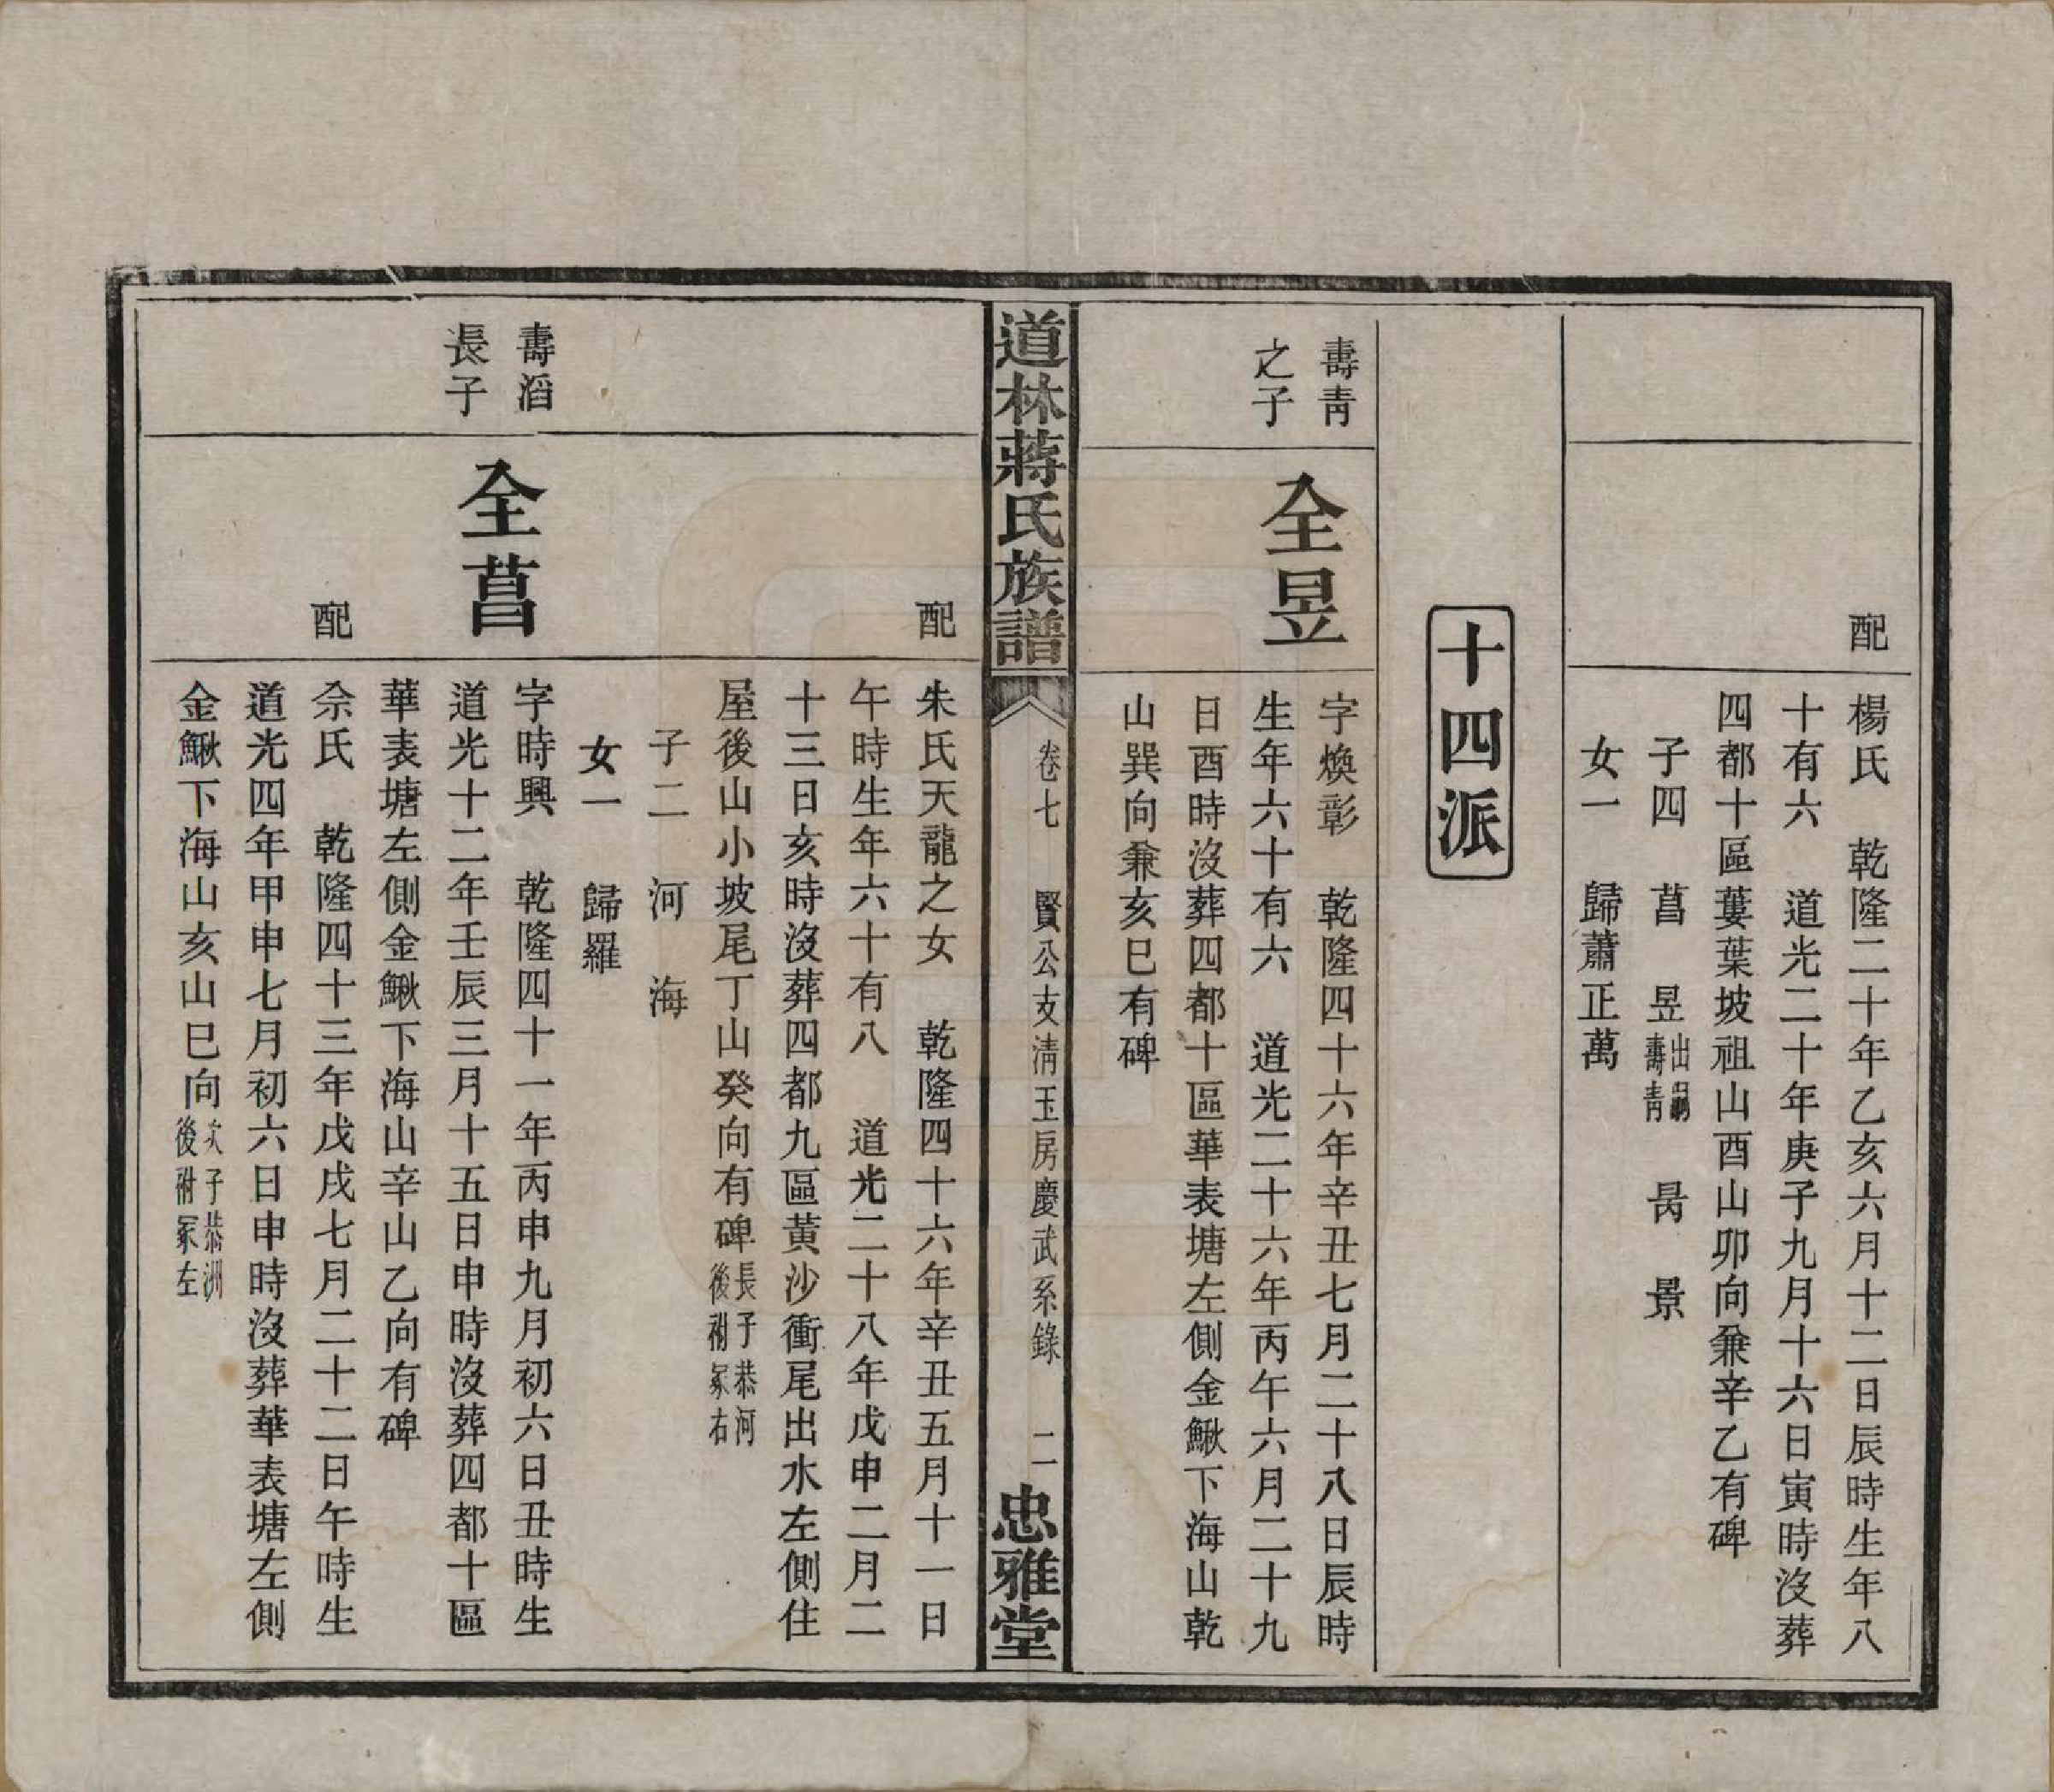 配
楊氏　乾隆二十年乙亥六月十二日辰時生年八
十有六　道光二十年庚子九月十六日寅時沒葬
四都十區蔞葉坡祖山酉山卯向兼辛乙有碑
子四　菖　昱出嗣壽青　昺　景
女一　歸蕭正萬
十四派
壽青
之子
全昱
字煥彰　乾隆四十六年辛丑七月二十八日辰時
生年六十有六　道光二十六年丙午六月二十九
日酉時沒葬四都十區華表塘左側金鰍下海山乾
山巽向兼亥巳有碑
道林蔣氏族譜
卷七　賢公支清玉房慶武系錄　二
忠雅堂
配
朱氏天龍之女　乾隆四十六年辛丑五月十一日
午時生年六十有八　道光二十八年戊申二月二
十三日亥時沒葬四都九區黃沙衝尾出水左側住
屋後山小坡尾丁山癸向有碑長子恭河後祔冢右
子二　河　海
女一　歸羅
壽滔
長子
全菖
字時興　乾隆四十一年丙申九月初六日丑時生
道光十二年壬辰三月十五日申時沒葬四都十區
華表塘左側金鰍下海山辛山乙向有碑
配
佘氏　乾隆四十三年戊戌七月二十二日午時生
道光四年甲申七月初六日申時沒葬華表塘左側
金鰍下海山亥山巳向次子恭洲後祔冢左